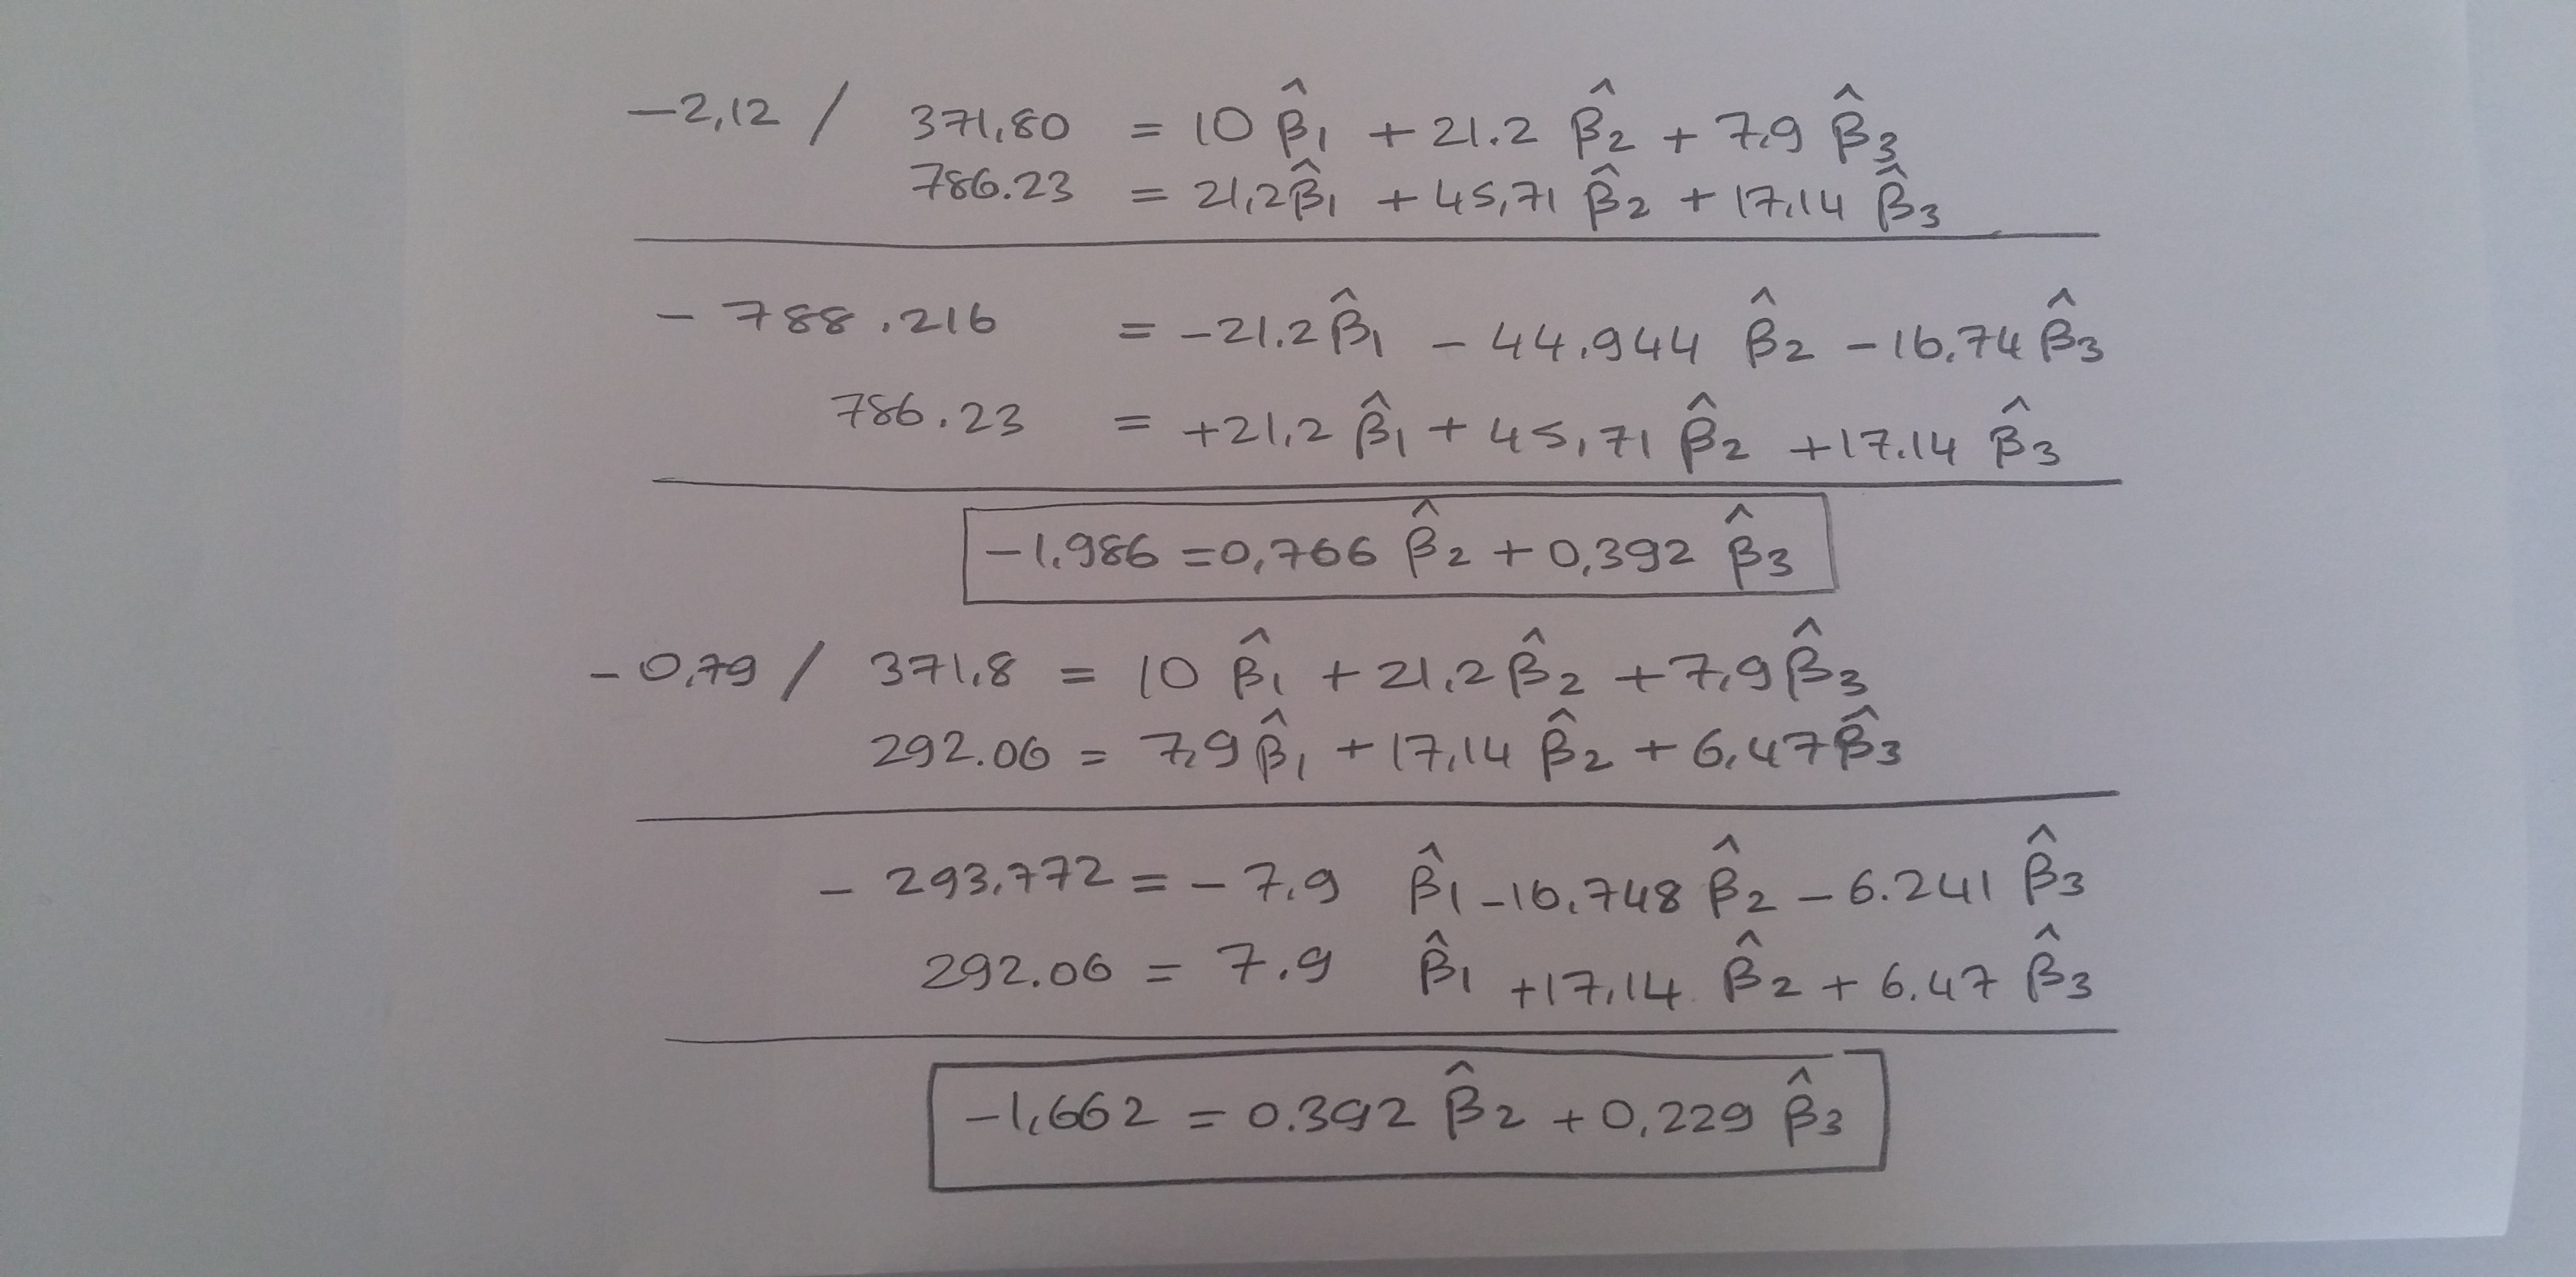 -2,12 / 371,80 = 10 β̂1 + 21.2 β̂2 + 7,9 β̂3
786.23 = 21,2 β̂1 + 45,71 β̂2 + 17,14 β̂3
- 788.216 = -21.2 β̂1 - 44.944 β̂2 - 16.74 β̂3
786.23 = +21,2 β̂1 + 45,71 β̂2 + 17.14 β̂3
-1.986 = 0,766 β̂2 + 0,392 β̂3
- 0,79 / 371,8 = 10 β̂1 + 21,2 β̂2 + 7,9 β̂3
292.06 = 7,9 β̂1 + 17,14 β̂2 + 6,47 β̂3
- 293,772 = - 7.9 β̂1 - 16.748 β̂2 - 6.241 β̂3
292.06 = 7.9 β̂1 + 17,14 β̂2 + 6.47 β̂3
-1,662 = 0.392 β̂2 + 0,229 β̂3